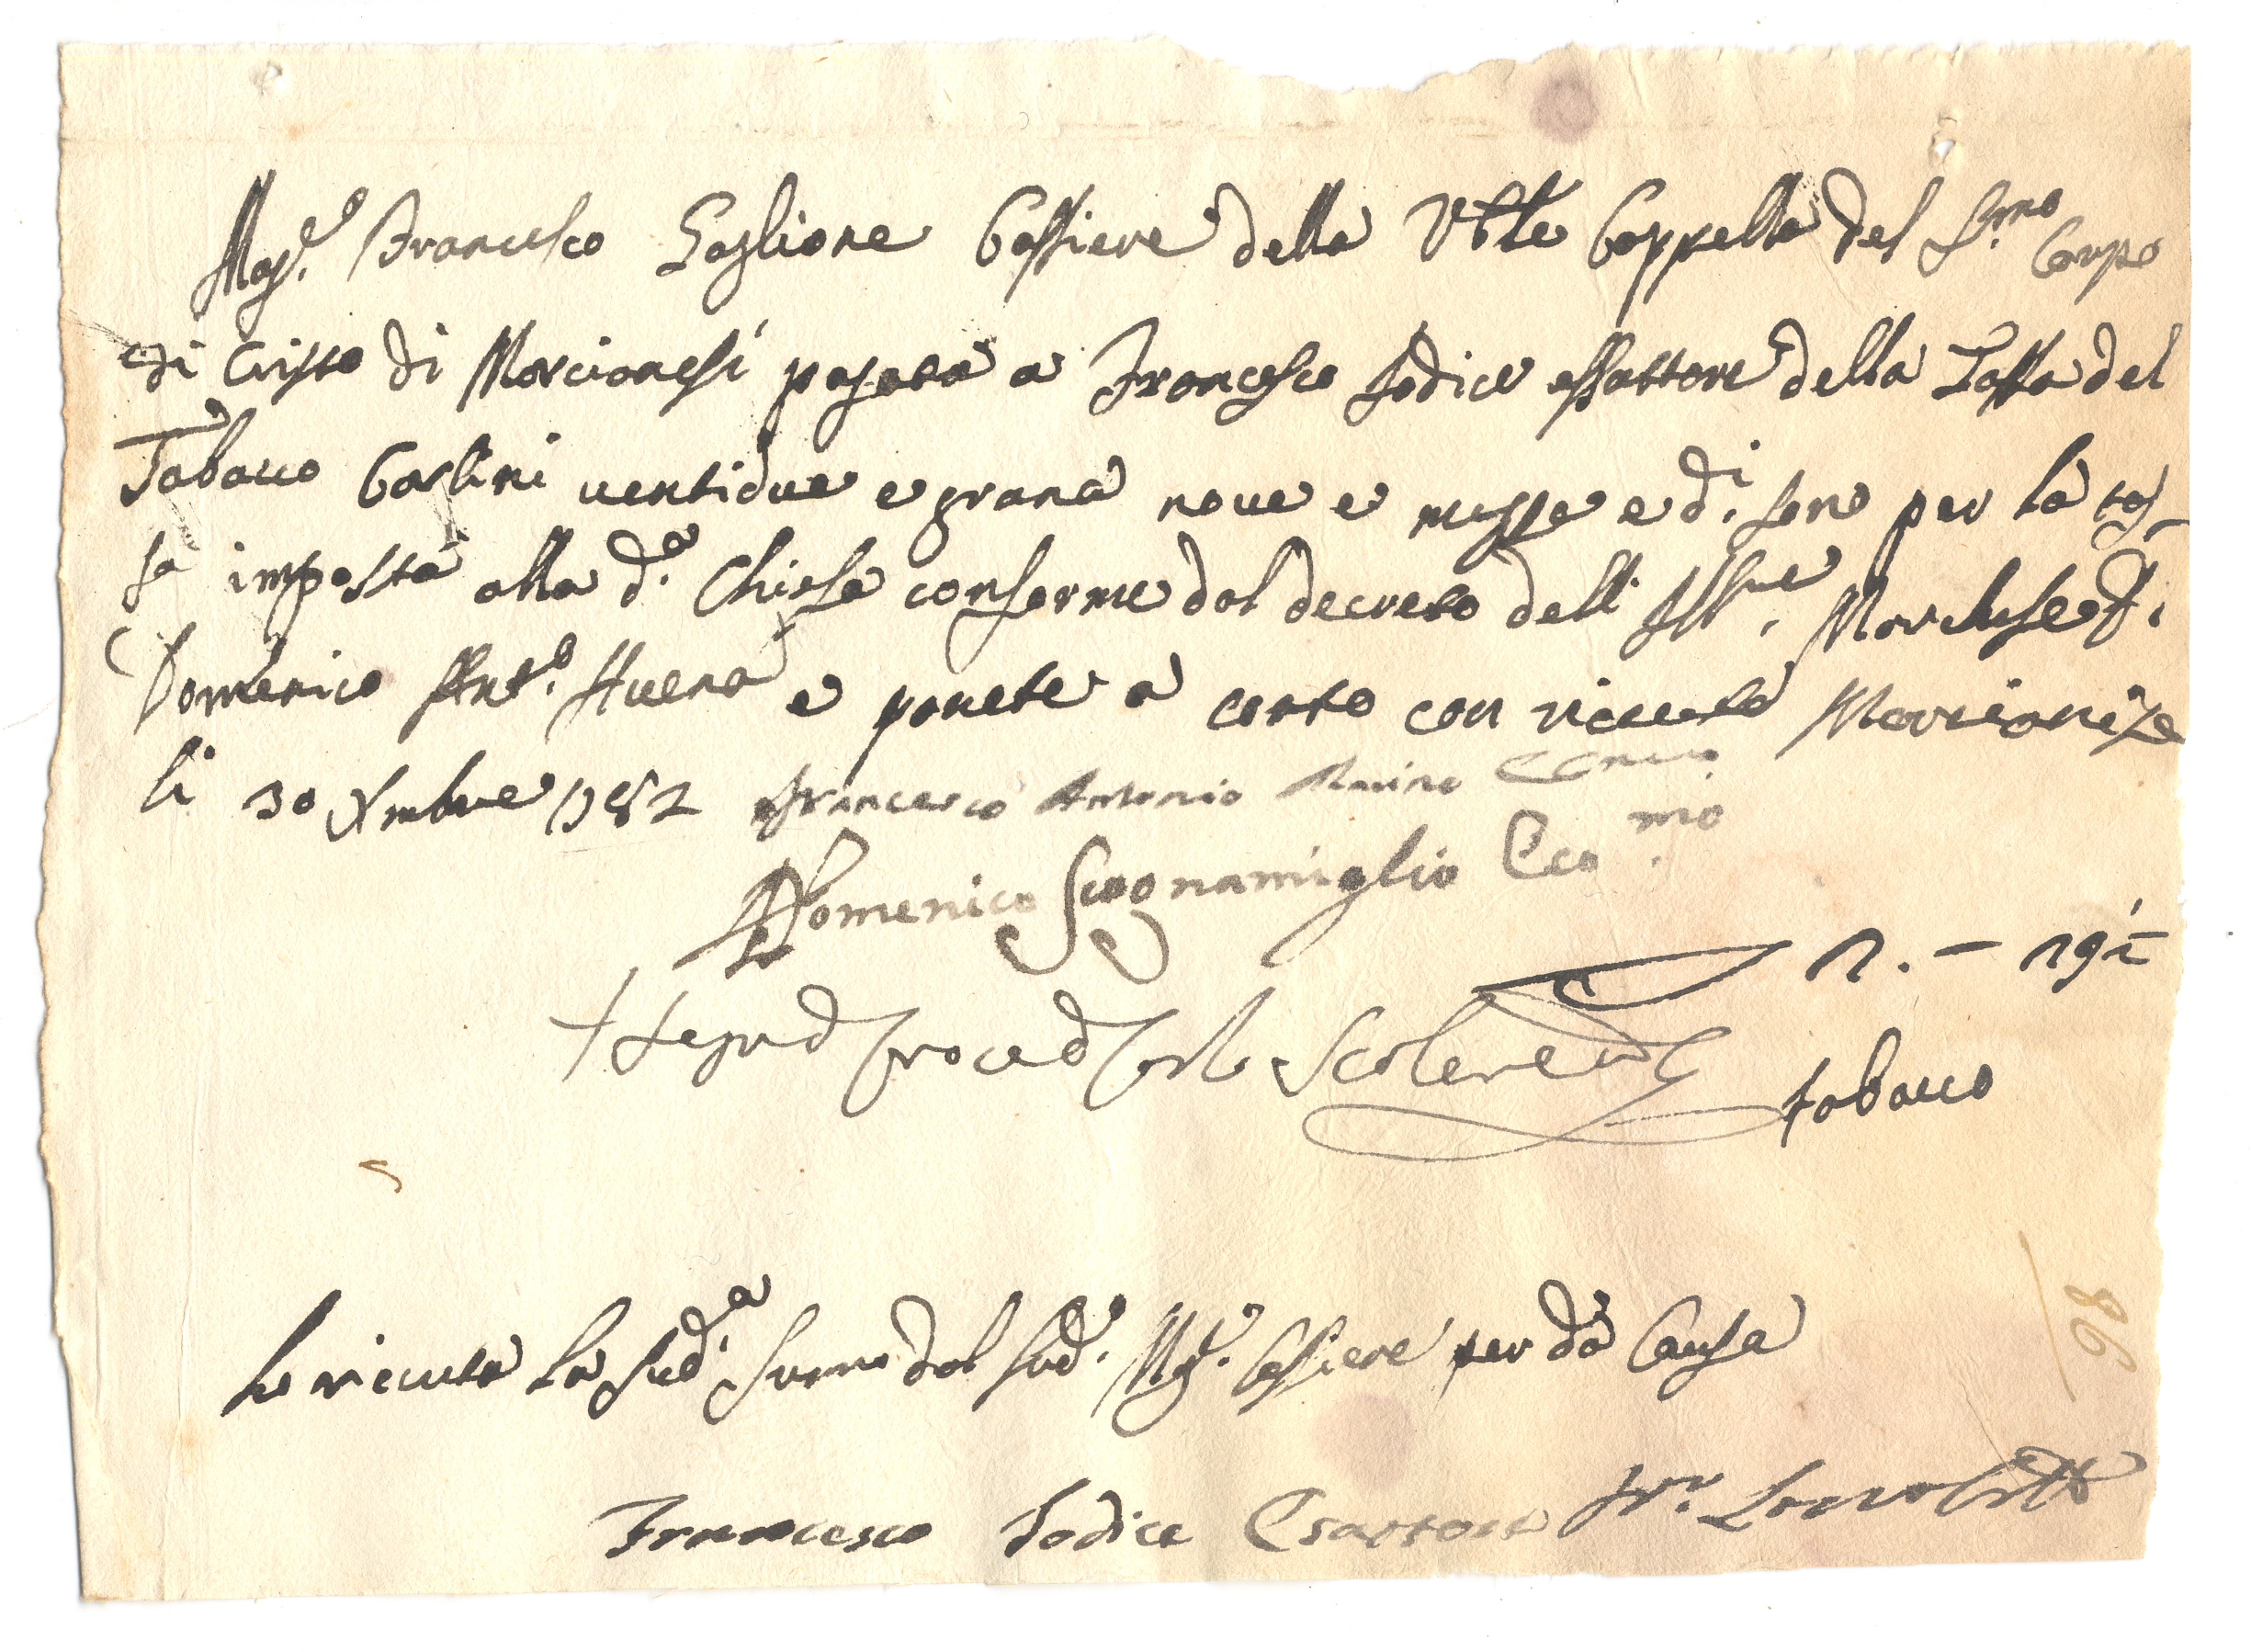 Mag.co Francesco Taglione Cassiere della Ve.le Cappella del S.mo Corpo
di Cristo di Marcianesi pagate a Francesco Iodice essattore della Tassa del
Tabacco Carlini ventidue e grana nove e mezzo e di sono per la tas-
sa imposta alla d.a Chiesa conforme dal decreto dell' Ill.re Marchese D.
Domenico Ant.o Avena e ponete a conto con riceuta Marcianise
li 30 Xmbre 1752 Francesco Antonio
Domenico Scognamiglio Eco.mo
+ Segno di Croce di
tabacco
ho riceuto la sud.a summa dal sud.o Mag.co Cassiere per d.a Causa
Francesco Iodice Esattore
86